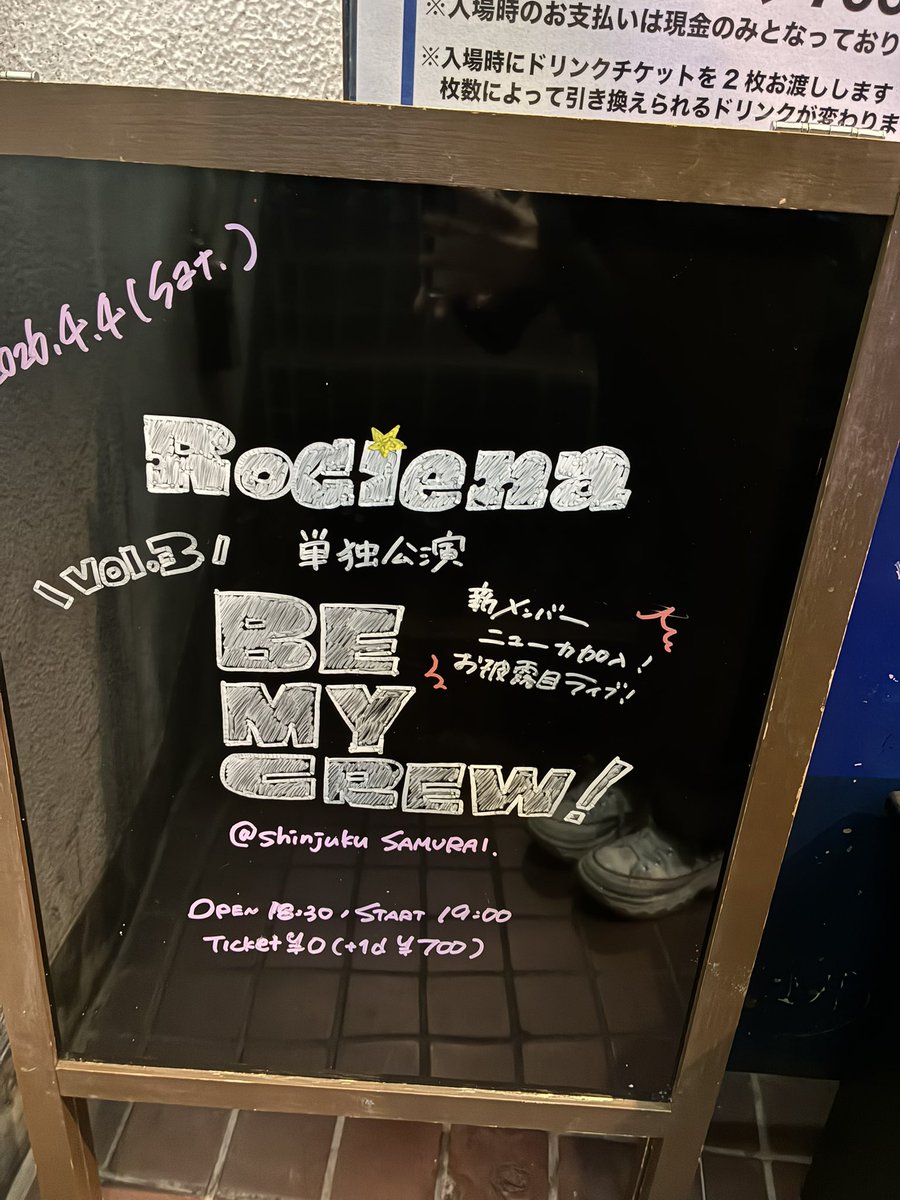 ※入場時のお支払いは現金のみとなっており
※入場時にドリンクチケットを2枚お渡しします
枚数によって引き換えられるドリンクが変わりま
2026.4.4(Sat.)
Rociena
\Vol.3/ 単独公演
BE
MY
CREW!
新メンバー
ニューカ加入!
お披露目ライブ!
@Shinjuku SAMURAI.
OPEN 18:30, START 19:00
Ticket ¥0 (+1d ¥700)